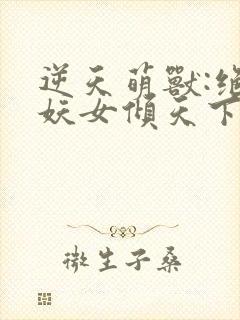 逆天萌獸:絕
妖女傾天下
微生子桑